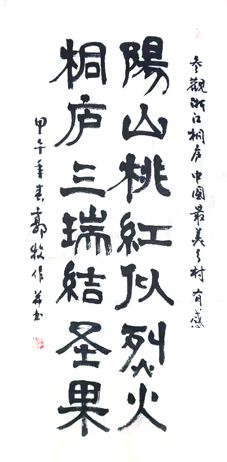 参觀浙江桐庐中國最美乡村有感
陽山桃紅似烈火
桐庐三瑞結圣果
甲午年春郭牧作并书